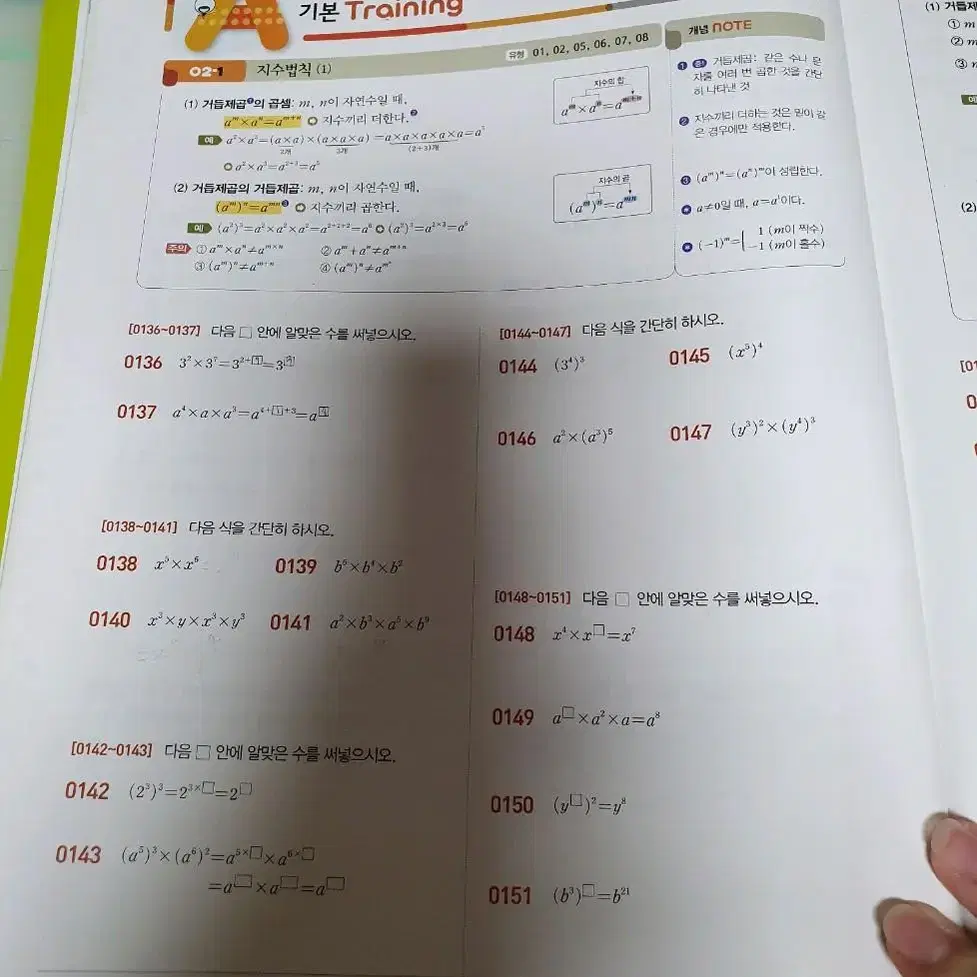 A 기본 Training
02-1 지수법칙 (1) 유형 01, 02, 05, 06, 07, 08
(1) 거듭제곱❶의 곱셈: m, n이 자연수일 때,
aᵐ×aⁿ=aᵐ⁺ⁿ ➲ 지수끼리 더한다.❷
예 a²×a³=(a×a)×(a×a×a)=a×a×a×a×a=a⁵
2개 3개 (2+3)개
➲ a²×a³=a²⁺³=a⁵
지수의 합
aᵐ×aⁿ=aᵐ⁺ⁿ
(2) 거듭제곱의 거듭제곱: m, n이 자연수일 때,
(aᵐ)ⁿ=aᵐⁿ❸ ➲ 지수끼리 곱한다.
예 (a²)³=a²×a²×a²=a²⁺²⁺²=a⁶ ➲ (a²)³=a²ˣ³=a⁶
지수의 곱
(aᵐ)ⁿ=aᵐⁿ
주의 ① aᵐ×aⁿ≠aᵐˣⁿ ② aᵐ+aⁿ≠aᵐ⁺ⁿ
③ (aᵐ)ⁿ≠aᵐ⁺ⁿ ④ (aᵐ)ⁿ≠a^(mⁿ)
개념 NOTE
❶ 중1 거듭제곱: 같은 수나 문
자를 여러 번 곱한 것을 간단
히 나타낸 것
❷ 지수끼리 더하는 것은 밑이 같
은 경우에만 적용한다.
❸ (aᵐ)ⁿ=(aⁿ)ᵐ이 성립한다.
a≠0일 때, a=a¹이다.
(-1)ᵐ= 1 (m이 짝수)
-1 (m이 홀수)
[0136~0137] 다음 □ 안에 알맞은 수를 써넣으시오.
0136 3²×3⁷=3²⁺□=3□
0137 a⁴×a×a³=a⁴⁺□⁺³=a□
[0138~0141] 다음 식을 간단히 하시오.
0138 x⁵×x⁶ 0139 b⁵×b⁴×b²
0140 x³×y×x³×y³ 0141 a²×b³×a⁵×b⁹
[0142~0143] 다음 □ 안에 알맞은 수를 써넣으시오.
0142 (2³)³=2³ˣ□=2□
0143 (a⁵)³×(a⁶)²=a⁵ˣ□×a⁶ˣ□
=a□×a□=a□
[0144~0147] 다음 식을 간단히 하시오.
0144 (3⁴)³ 0145 (x⁵)⁴
0146 a²×(a³)⁵ 0147 (y³)²×(y⁴)³
[0148~0151] 다음 □ 안에 알맞은 수를 써넣으시오.
0148 x⁴×x□=x⁷
0149 a□×a²×a=a⁸
0150 (y□)²=y⁸
0151 (b³)□=b²¹
(1) 거듭제
① m
② m
③
예
(2)
[01
0